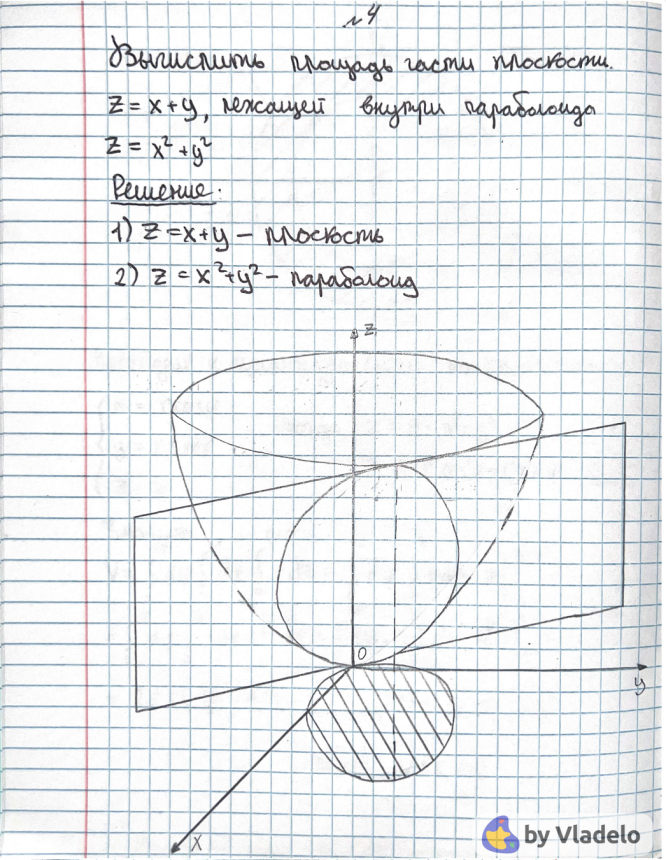 №4
Вычислить площадь части плоскости.
z = x+y, лежащей внутри параболоида
z = x² + y²
Решение:
1) z = x+y – плоскость
2) z = x² + y² – параболоид
z
O
y
x
by Vladelo